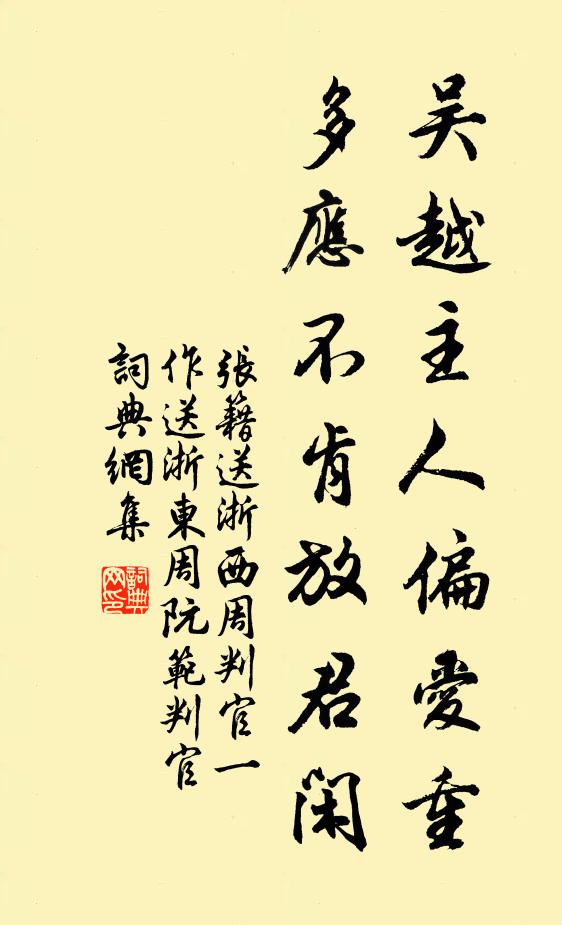 吴越主人偏愛重
多應不肯放君闲
張籍送浙西周判官一
作送浙東周阮範判官
詞典網集
詞典
网印